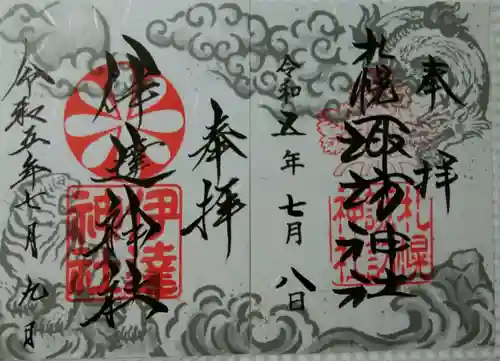 奉拝
札幌諏訪神社
令和五年七月八日
札幌
諏訪
神社
奉拝
伊達神社
令和五年七月九日
伊達
神社